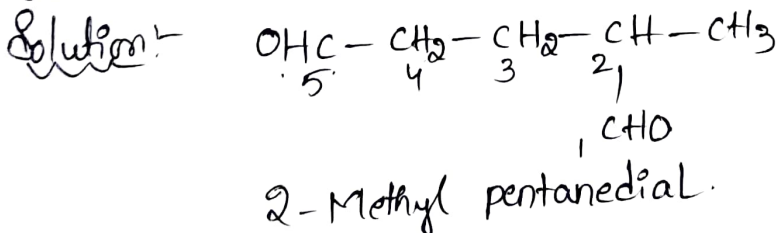 Solution:-
OHC - CH2 - CH2 - CH - CH3
5 4 3 2
1 CHO
2-Methyl pentanedial.